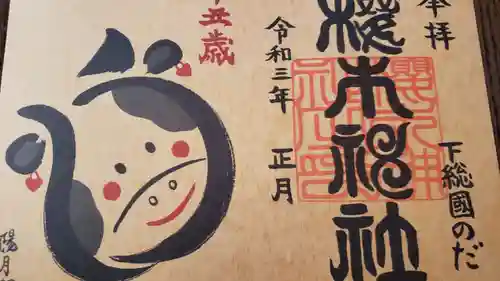 奉拝
下総國のだ
櫻木神社
令和三年 正月
辛丑歳
陽月